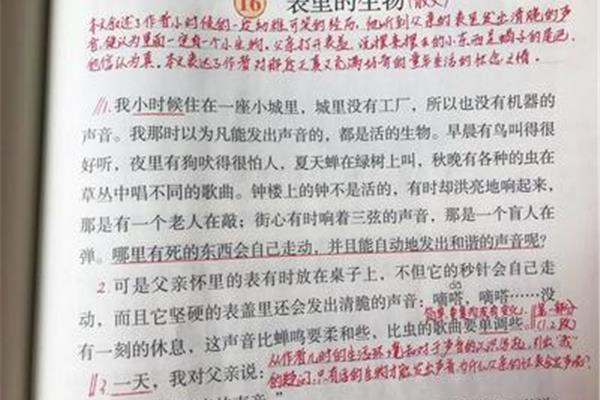 16 表里的生物(散文)
本文叙述了作者小时候的一段幼稚可笑的经历,他听到父亲的表里发出清脆的声
音,便认为里面一定有一个小生物。父亲打开表盖,说摆来摆去的小东西是蝎子的尾巴,
他信以为真。本文表达了作者对那段天真又充满好奇的童年生活的怀念之情。
1.我小时候住在一座小城里,城里没有工厂,所以也没有机器的
声音。我那时以为凡能发出声音的,都是活的生物。早晨有鸟叫得很
好听,夜里有狗吠得很怕人,夏天蝉在绿树上叫,秋晚有各种的虫在
草丛中唱不同的歌曲。钟楼上的钟不是活的,有时却洪亮地响起来,
那是有一个老人在敲;街心有时响着三弦的声音,那是一个盲人在
弹。哪里有死的东西会自己走动,并且能自动地发出和谐的声音呢?
2.可是父亲怀里的表有时放在桌子上,不但它的秒针会自己走
dā
动,而且它坚硬的表盖里还会发出清脆的声音:嘀嗒,嘀嗒……没
简单、重复而没有变化。
第一部分
有一刻的休息,这声音比蝉鸣要柔和些,比虫的歌曲要单调些。
(1、2段)
3.一天,我对父亲说: